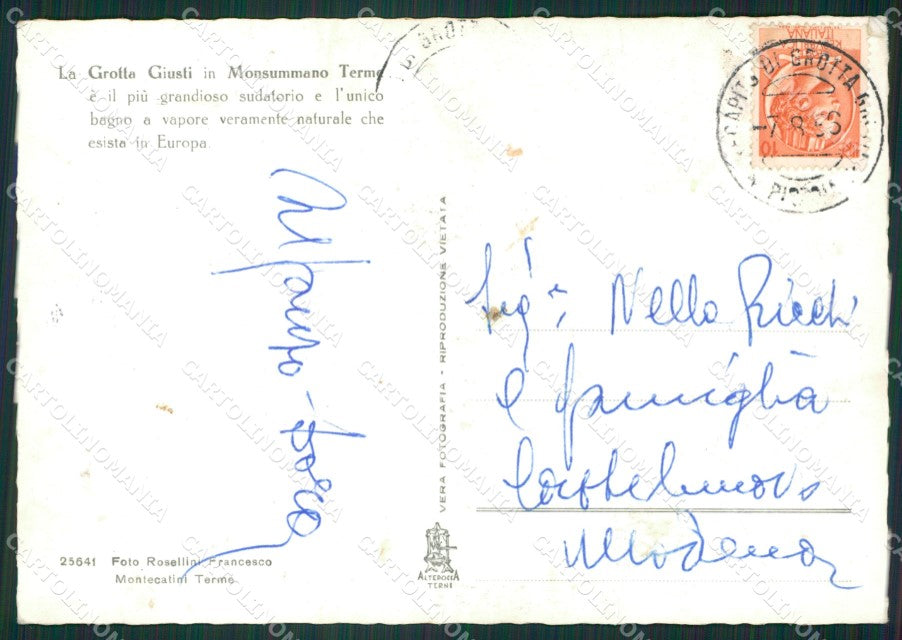 La Grotta Giusti in Monsummano Terme
è il più grandioso sudatorio e l'unico
bagno a vapore veramente naturale che
esista in Europa.
VERA FOTOGRAFIA - RIPRODUZIONE VIETATA
DI GROTTA
PISTOIA
ITALIANA
10
Sigri Nello Ricchi
e famiglia
Castelnuovo
Modena
25641 Foto Rosellini Francesco
Montecatini Terme
ALTEROCCA
TERNI
CARTOLINOMANIA